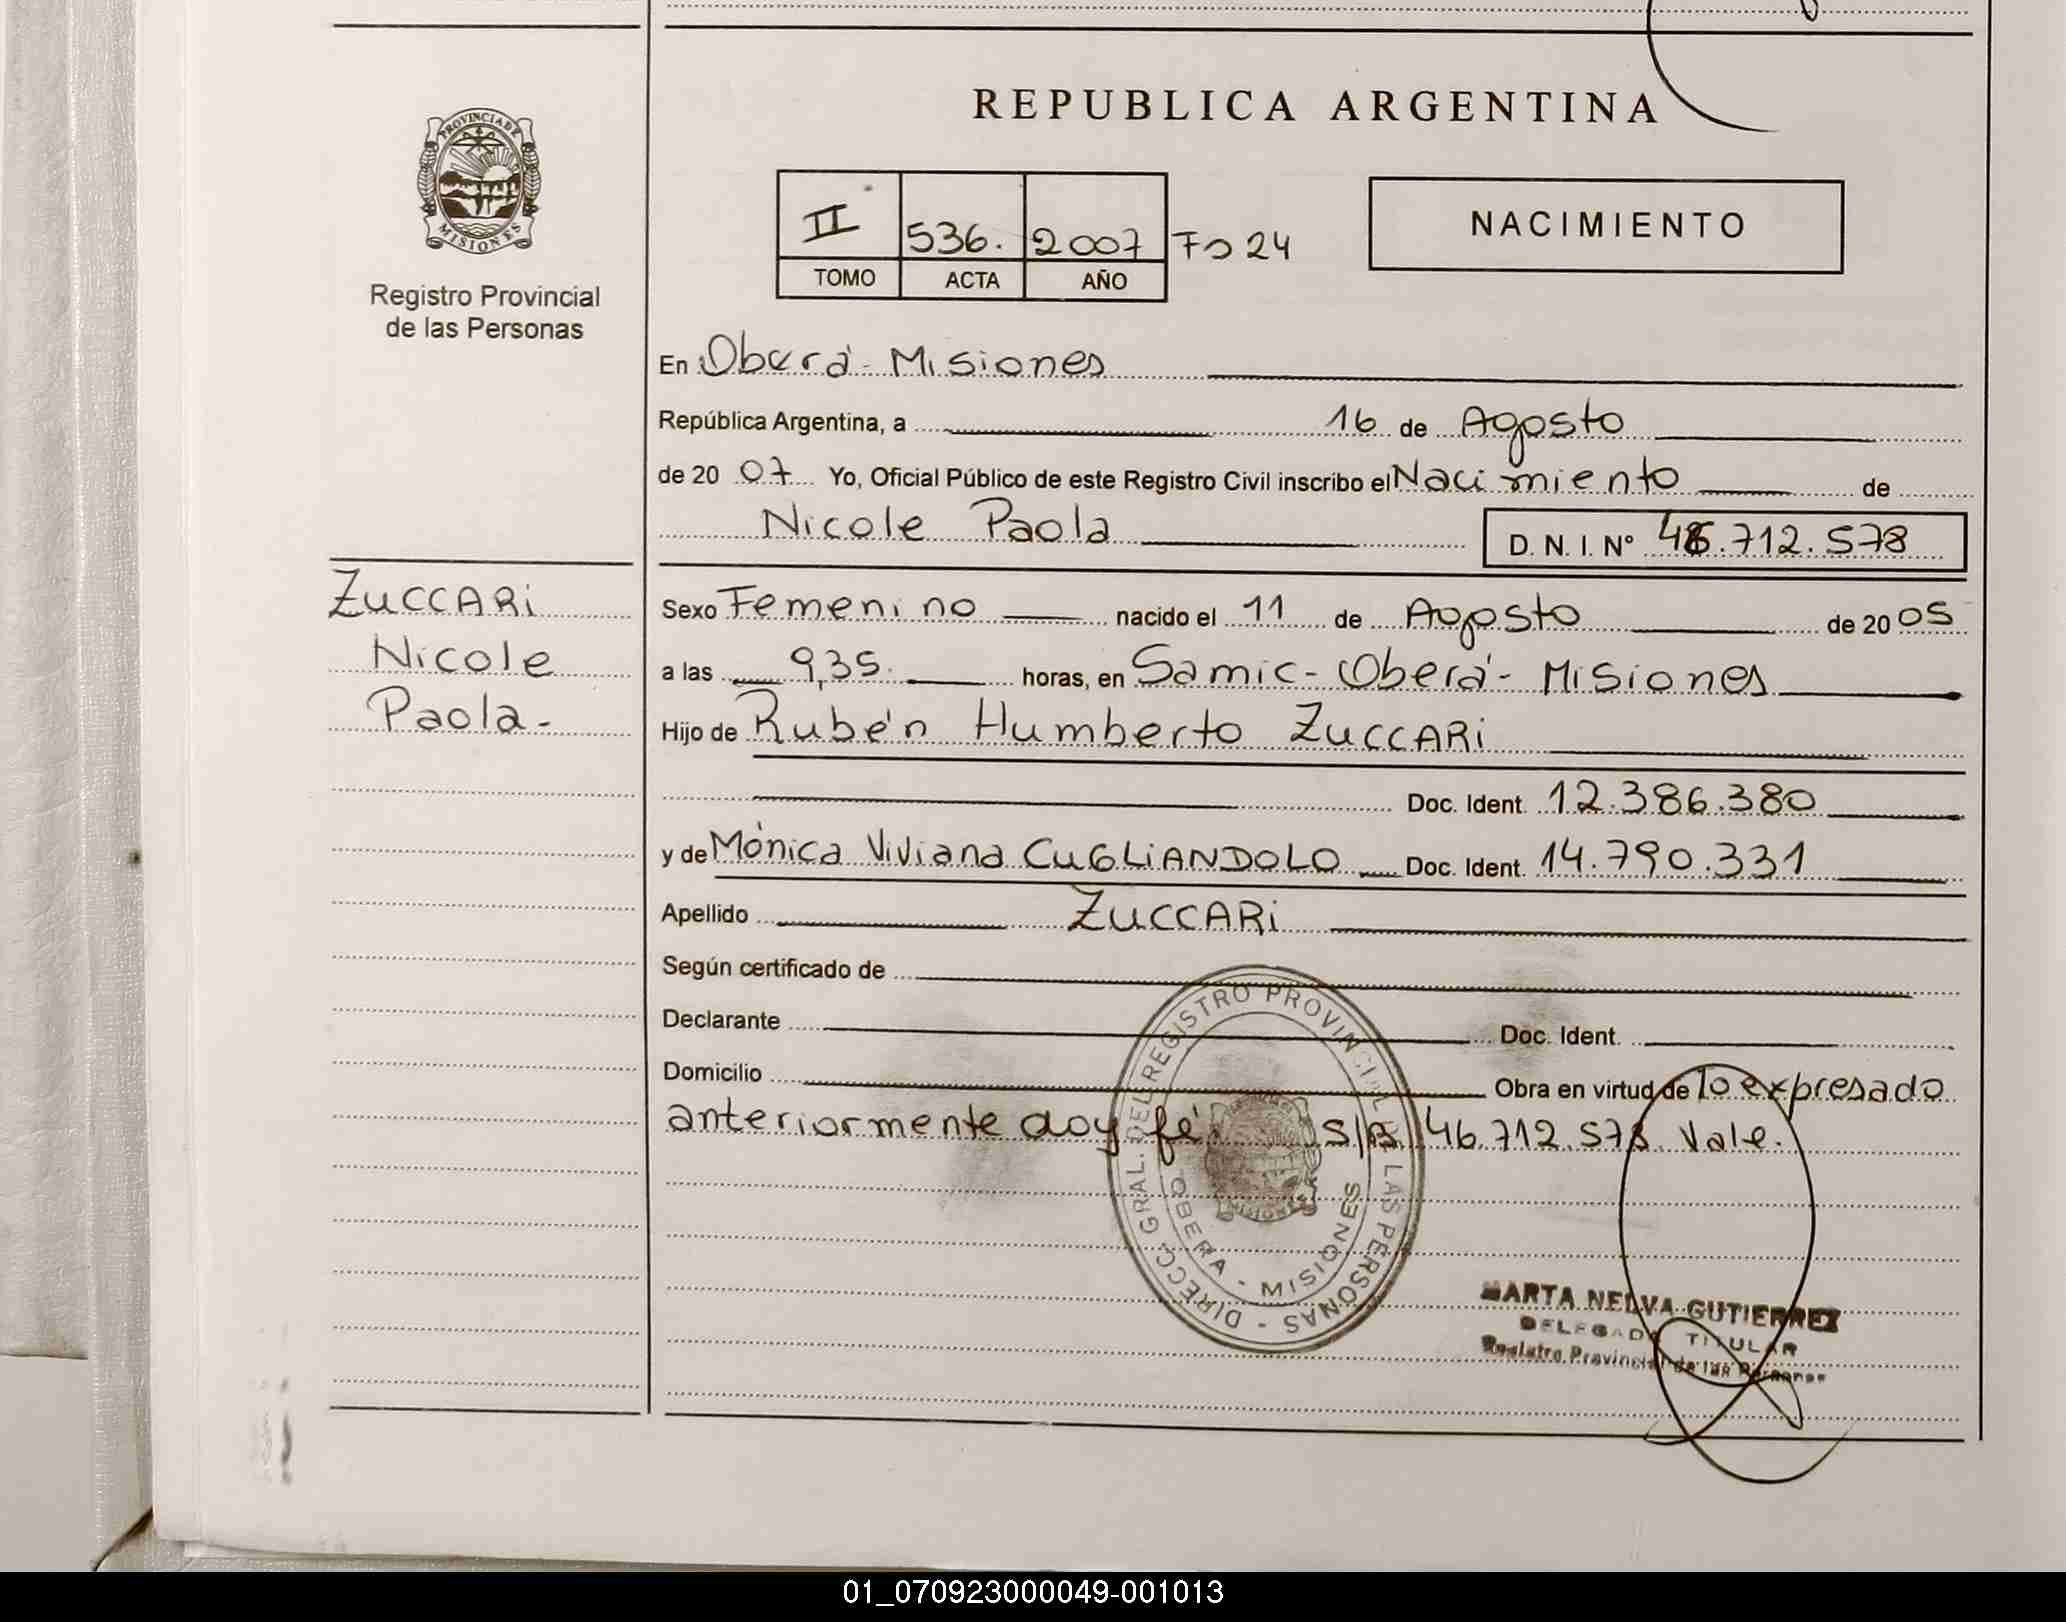 REPUBLICA ARGENTINA
PROVINCIA DE MISIONES
Registro Provincial
de las Personas
II 536. 2007 Fo 24
TOMO ACTA AÑO
NACIMIENTO
En Oberá - Misiones
República Argentina, a 16 de Agosto
de 20 07 Yo, Oficial Público de este Registro Civil inscribo el Nacimiento de
Nicole Paola D. N. I. Nº 46.712.578
ZUCCARi
Nicole
Paola-
Sexo Femenino nacido el 11 de Agosto de 20 05
a las 9,35. horas, en Samic - Oberá - Misiones
Hijo de Rubén Humberto ZUCCARi
Doc. Ident. 12.386.380
y de Mónica Viviana CUGLiANDOLO Doc. Ident. 14.790.331
Apellido ZUCCARi
Según certificado de
Declarante Doc. Ident.
Domicilio Obra en virtud de lo expresado
anteriormente doy fé. S/R 46.712.578. Vale.
DIRECC. GRAL. DEL REGISTRO PROVINCIAL DE LAS PERSONAS -
OBERA - MISIONES
MISIONES
MARTA NELVA GUTIERREZ
DELEGADA TITULAR
Registro Provincial de las Personas
01_070923000049-001013